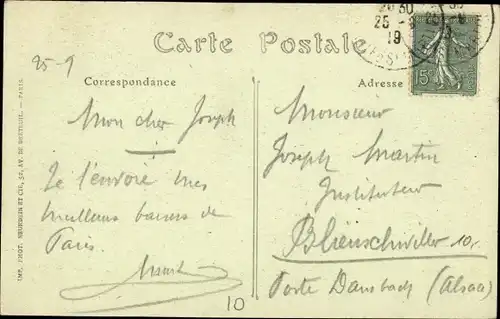 Carte Postale
25-9
Correspondance
Adresse
Mon cher Joseph
Je t'envoie mes
meilleurs baisers de
Paris.
Monsieur
Joseph Martin
Instituteur
Blienschwiller
Poste Dambach (Alsace)
IMP. PHOT. NEURDEIN ET CIE, 52, AV. DE BRETEUIL. — PARIS.
10
15
30
25
19